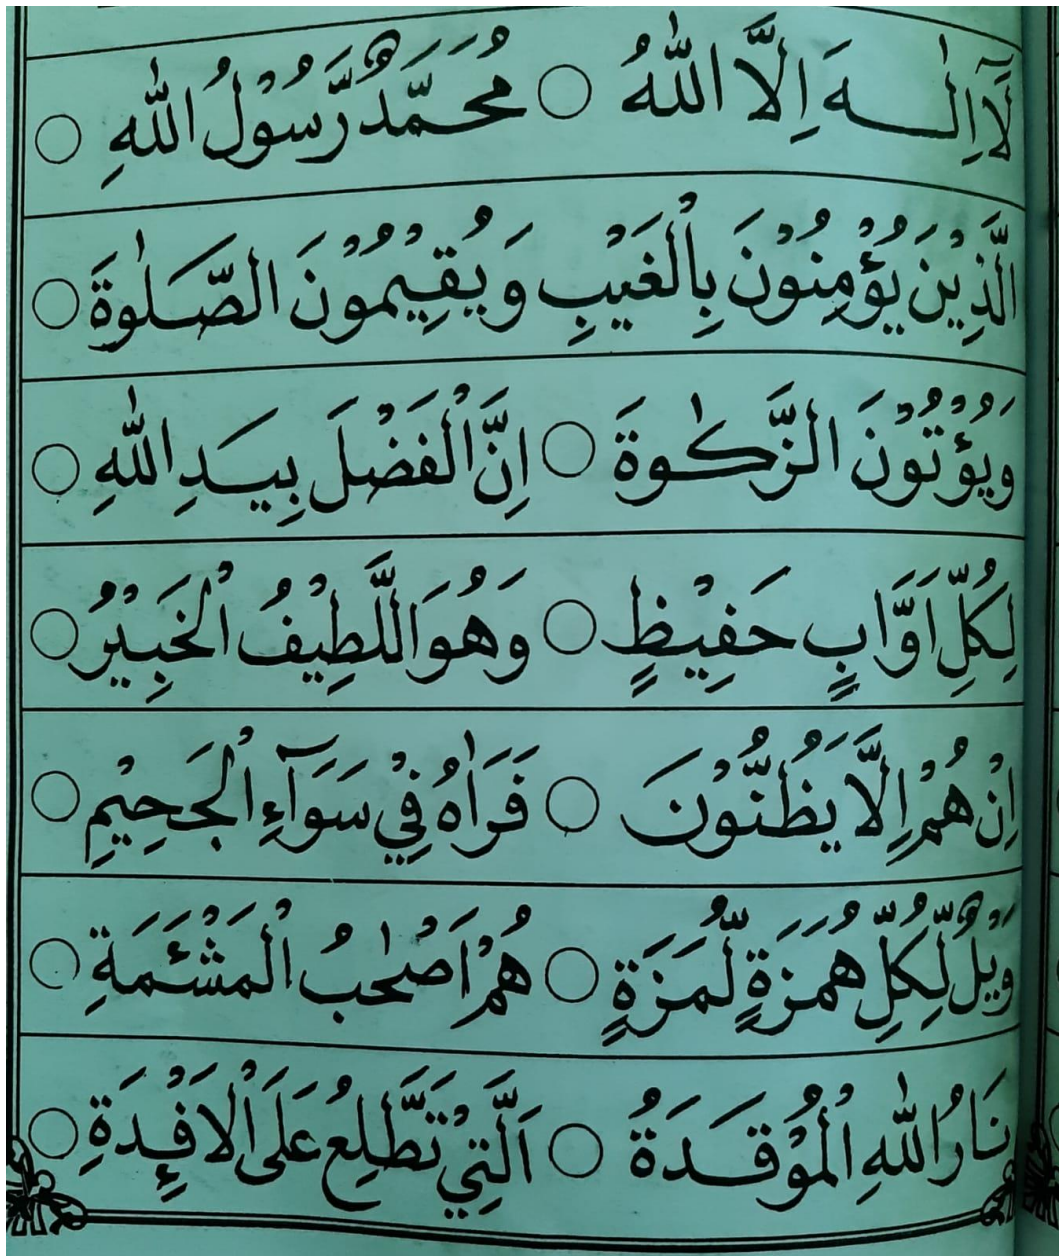 لَآ اِلٰهَ اِلَّا اللّٰهُ ○ مُحَمَّدٌ رَّسُوْلُ اللّٰهِ ○
الَّذِيْنَ يُؤْمِنُوْنَ بِالْغَيْبِ وَيُقِيْمُوْنَ الصَّلٰوةَ ○
وَيُؤْتُوْنَ الزَّكٰوةَ ○ اِنَّ الْفَضْلَ بِيَدِ اللّٰهِ ○
لِكُلِّ اَوَّابٍ حَفِيْظٍ ○ وَهُوَ اللَّطِيْفُ الْخَبِيْرُ ○
اِنْ هُمْ اِلَّا يَظُنُّوْنَ ○ فَرَاٰهُ فِيْ سَوَآءِ الْجَحِيْمِ ○
وَيْلٌ لِّكُلِّ هُمَزَةٍ لُّمَزَةٍ ○ هُمْ اَصْحٰبُ الْمَشْئَمَةِ ○
نَارُ اللّٰهِ الْمُوْقَدَةُ ○ اَلَّتِيْ تَطَّلِعُ عَلَى الْاَفْـِٕدَةِ ○